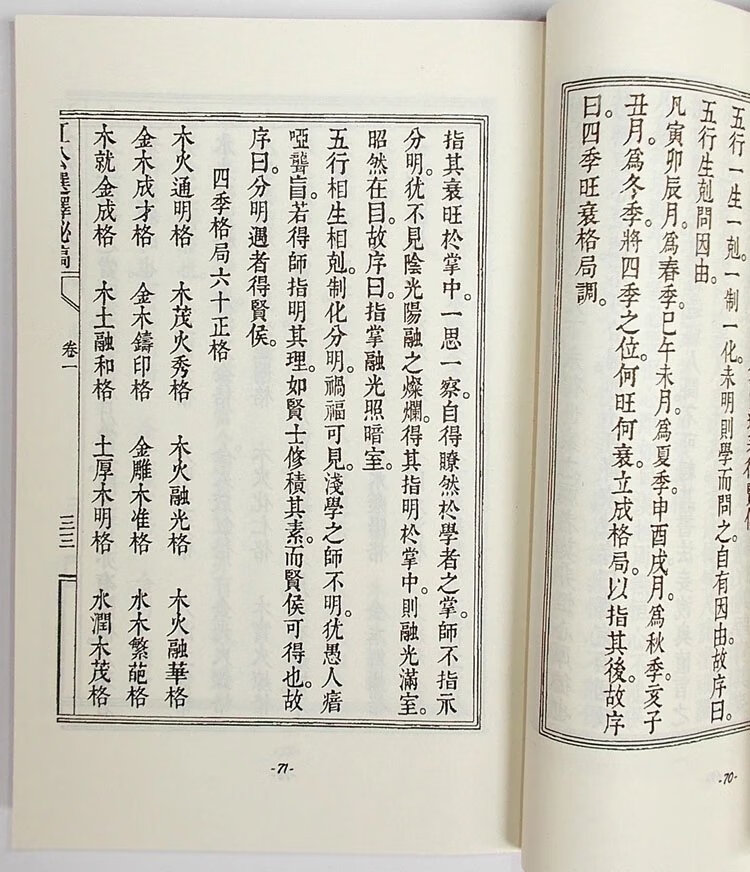 五行一生一剋一制一化未明則學而問之自有因由故序曰
五行生剋問因由
凡寅卯辰月為春季巳午未月為夏季申酉戌月為秋季亥子
丑月為冬季將四季之位何旺何衰立成格局以指其後故序
曰四季旺衰格局調
-70-
指其衰旺於掌中一思一察自得瞭然於學者之掌師不指示
分明犹不見陰光陽融之燦爛得其指明於掌中則融光滿室
昭然在目故序曰指掌融光照暗室
五行相生相剋制化分明禍福可見淺學之師不明犹愚人瘖
啞聾盲若得師指明其理如賢士修積其素而賢侯可得也故
序曰分明遇者得賢侯
四季格局六十正格
木火通明格 木茂火秀格 木火融光格 木火融華格
金木成才格 金木鑄印格 金雕木准格 水木繁葩格
木就金成格 木土融和格 土厚木明格 水潤木茂格
選擇秘稿 卷一 三三
-71-